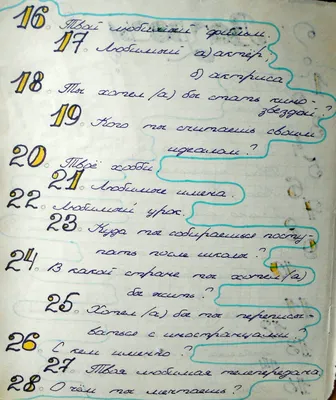 16. Твой любимый фильм.
17. Любимый а) актёр,
б) актриса
18. Ты хотел/а/ бы стать кино-
звездой
19. Кого ты считаешь своим
идеалом?
20. Твоё хобби.
21. Любимые имена.
22. Любимый урок.
23. Куда ты собираешься посту-
пать после школы?
24. В какой стране ты хотел/а/
бы жить?
25. Хотел/а/ бы ты переписы-
ваться с иностранцами?
26. С кем именно?
27. Твоя любимая телепередача
28. О чём ты мечтаешь?